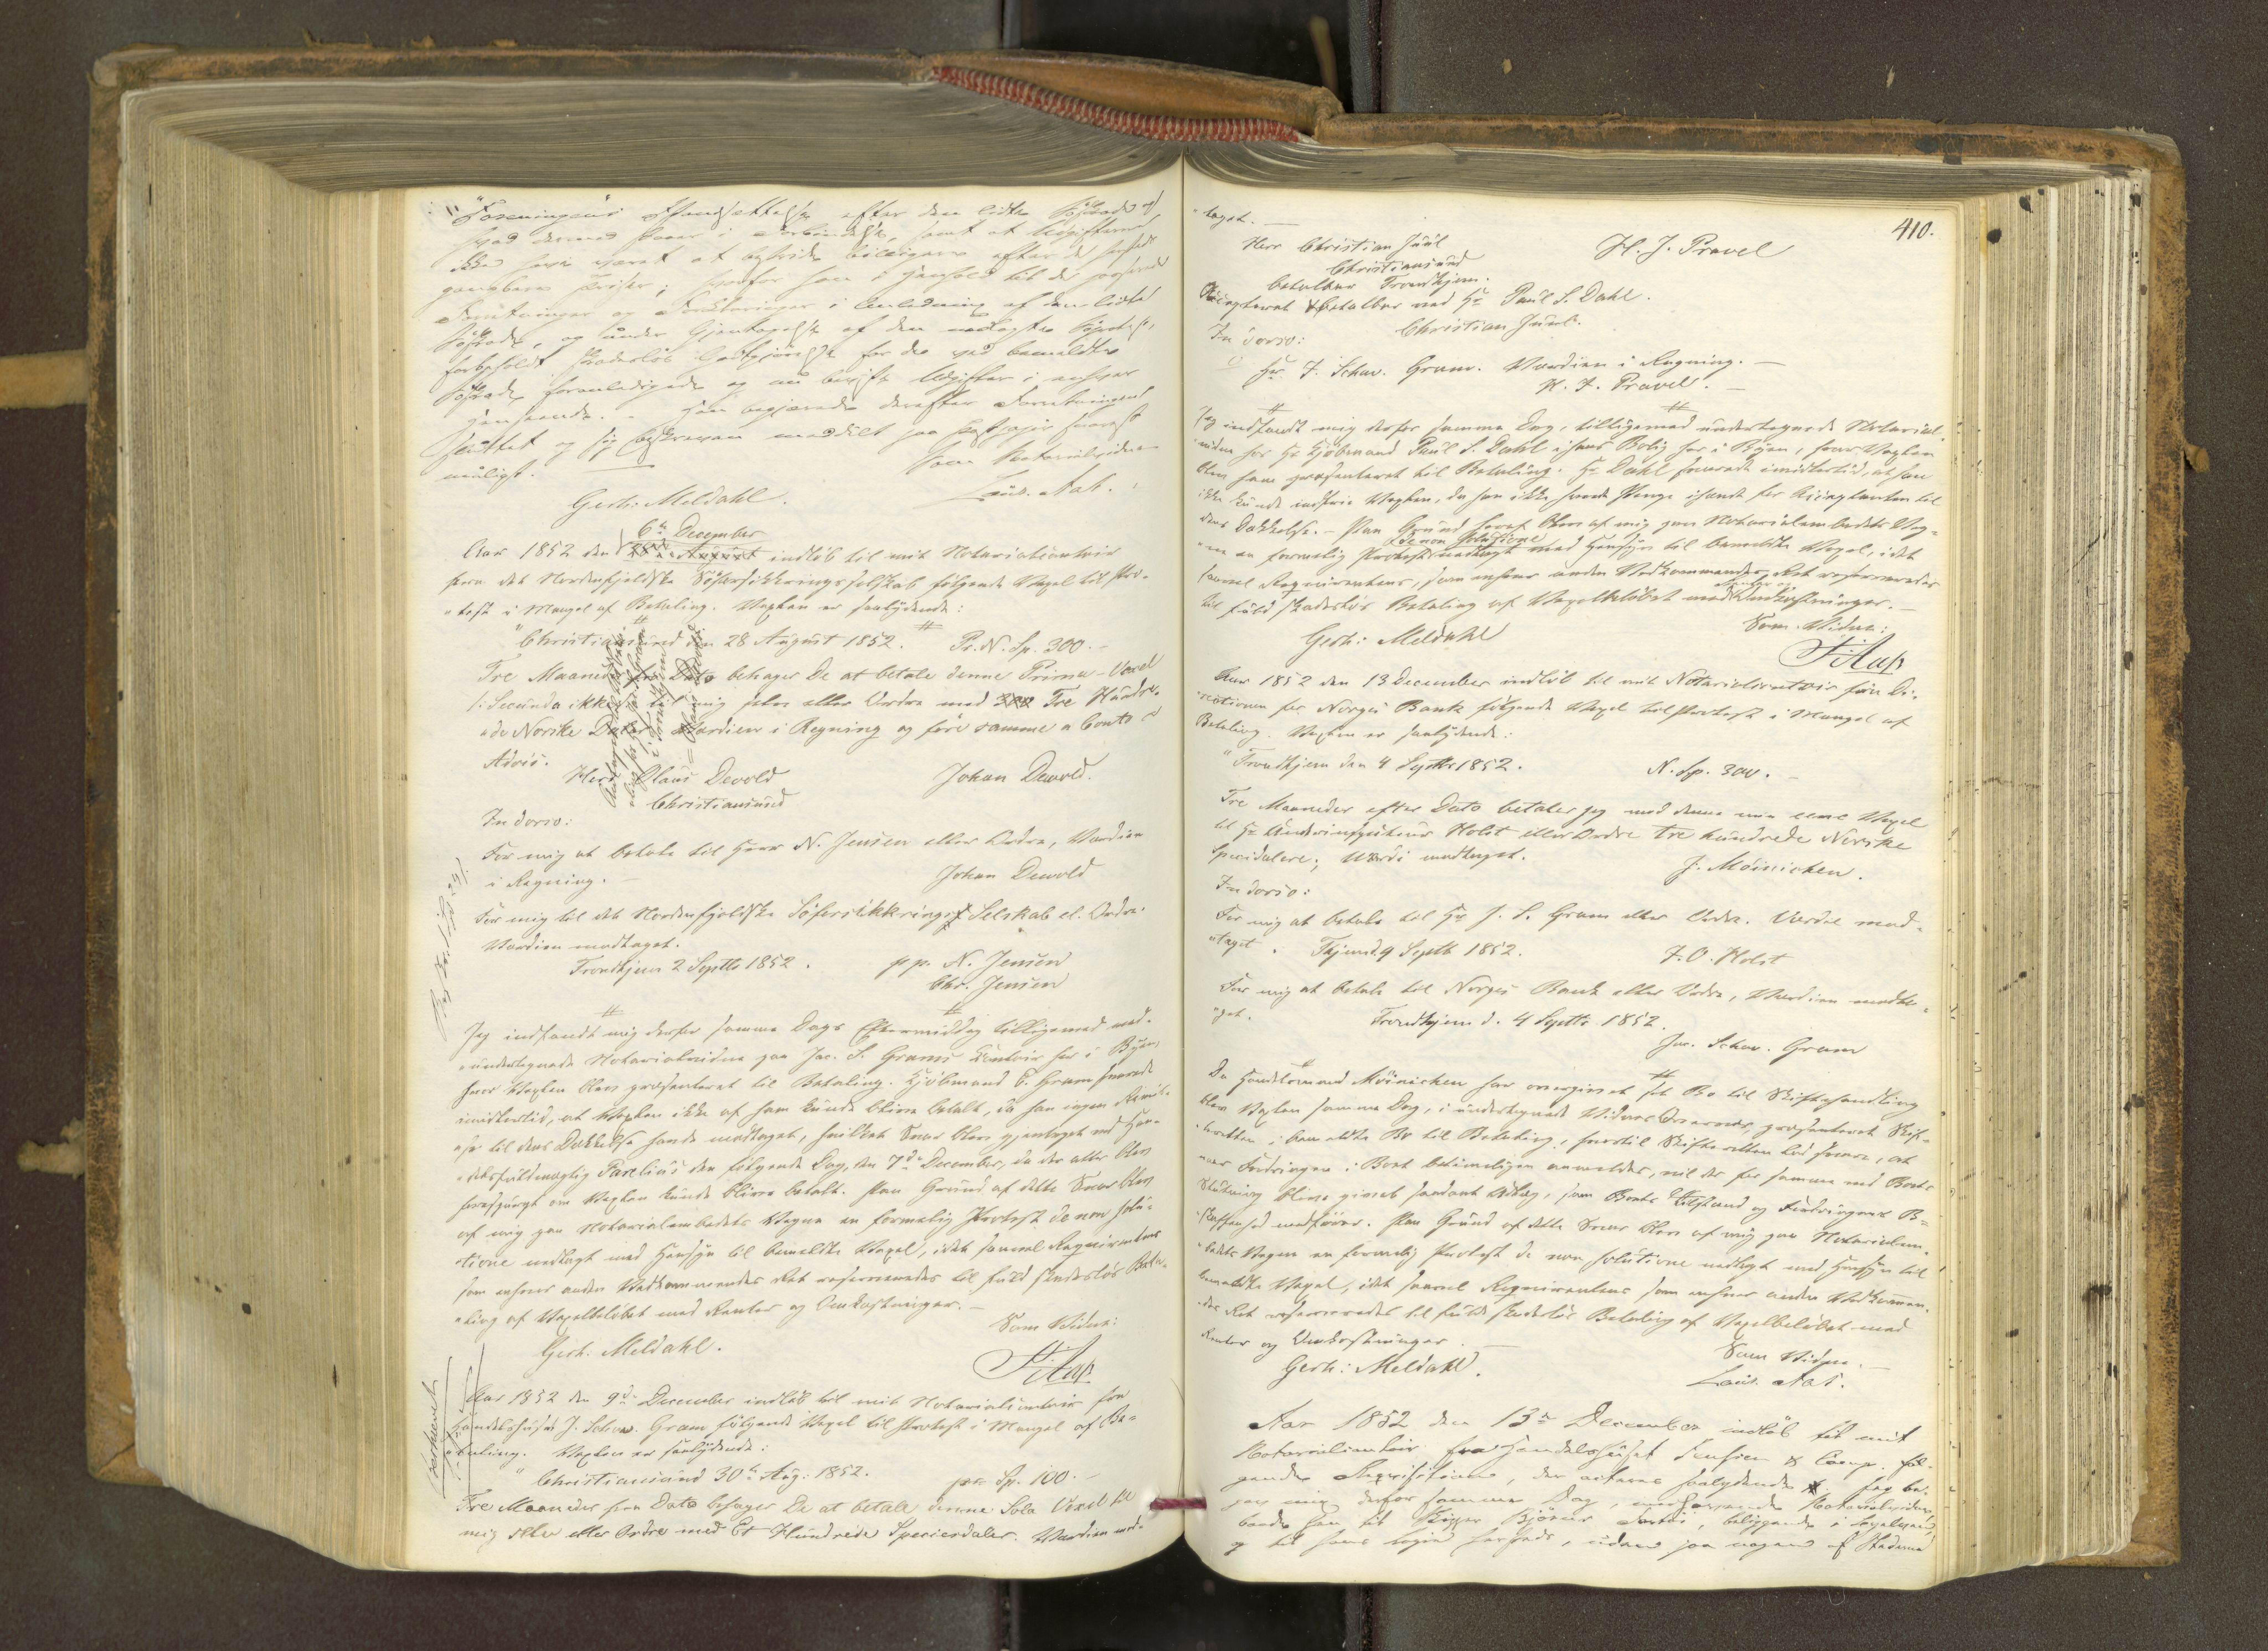 "Foreningens" Istandsættelse efter den lidte Søskade og
hvad dermed staar i Forbindelse, samt at Udgifterne
ikke have været at bestride billigere efter de her
gangbare Priser; hvorfor han i Henhold til de passerede
Forretninger og Forklaringer i Anledning af den lidte
Søskade, og under Gjentagelse af den nedlagte Søprotest,
forbeholdt skadesløs Godtgjørelse for de ved bemeldte
Søskade foranledigede og nu beviste Udgifter i enhver
Henseende. - Han begjærede derefter Forretningen
sluttet og sig beskreven meddelt paa Stempapir snarest
muligt.
Som Notarialvidne
Gerh: Meldahl. Laur. Aas.
6te December
Aar 1852 den indløb til mit Notarialcontoir
fra det Nordenfjeldske Søforsikkringsselskab følgende Vexel til Pro-
"test i Mangel af Betaling. Vexlen er saalydende:
"Christiansund den 28 August 1852. Pr. N. Sp. 300.-
Tre Maaneder fra Dato behager De at betale denne Prima-Vexel
/: Secunda ikke til mig selv eller Ordre med 300 Tre Hundre-
"de Norske Daler Værdien i Regning og føre samme a Conto
Advis.
Herr Claus Devold Johan Devold.
Christiansund
In dorso:
For mig at betale til Herr N. Jensen eller Ordre, Værdien
i Regning.- Johan Devold
For mig til det Nordenfjeldske Søforsikkrings Selskab el. Ordre.
Værdien modtaget.
Trondhjem 2 Septb 1852. pp. N. Jensen
Chr. Jensen
Jeg indfandt mig derfor samme Dags Eftermiddag tilligemed med-
"undertegnede Notarialvidne paa Jac. S. Grams Contoir her i Byen,
hvor Vexlen blev præsenteret til Betaling. Kjøbmand C. Gram svarede
imidlertid, at Vexlen ikke af ham kunde blive betalt, da han ingen Rimi-
"se til dens Dækkelse havde modtaget, hvilket Svar blev gjentaget ved Han-
"delsfuldmægtig Parelius den følgende Dag, den 7de December, da der atter blev
forespurgt om Vexlen kunde blive betalt. Paa Grund af dette Svar blev
af mig paa Notarialembedets Vegne en formelig Protest de non solu-
"tione nedlagt med Hensyn til bemeldte Vexel, idet saavel Requirentens
som enhver anden Vedkommendes Ret reserveredes til fuld skadesløs Beta-
"ling af Vexelbeløbet med Renter og Omkostninger.-
Som Vidne:
Gerh. Meldahl.
Aar 1852 den 9de December indløb til mit Notarialcontoir fra
Handelshuset J. Schav. Gram følgende Vexel til Protest i Mangel af Be-
"taling. Vexlen er saalydende:
"Christiansund 30te Aug: 1852. Sp. 100.-
Tre Maaneder fra Dato behager De at betale denne Sola Vexel til
mig selv eller Ordre med Et Hundrede Speciesdaler. Værdien mod-
410.
"taget.-
Herr Christian Juul H. J. Pravel
Christiansund
betalbar Trondhjem.
Accepteret & betalbar ved Hr Paul S. Dahl.
Christian Juul.
In dorso:
Hr. J. Schav. Gram. Værdien i Regning.-
H. J. Pravel.-
Jeg indfandt mig derfor samme Dag, tilligemed undertegnede Notarial-
"vidne hos Hr Kjøbmand Paul S. Dahl i hans Bolig her i Byen, hvor Vexlen
blev ham præsenteret til Betaling. Hr Dahl svarede imidlertid, at han
ikke kunde indfrie Vexlen, da han ikke havde Penge ihænde fra Acceptanten til
dens Dækkelse.- Paa Grund heraf blev af mig paa Notarialembedets Veg-
de non solutione
"ne en formelig Protest nedlagt med Hensyn til bemeldte Vexel, idet
saavel Requirentens, som enhver anden Vedkommendes Ret reserveredes
Renter og
til fuld skadesløs Betaling af Vexelbeløbet med Omkostninger.-
Som Vidne:
Gerh: Meldahl
Aar 1852 den 13 December indløb til mit Notarialcontoir fra Di-
"rectionen for Norges Bank følgende Vexel til Protest i Mangel af
Betaling. Vexlen er saalydende:
"Trondhjem den 4 Septbr 1852. N. Sp. 300.-
Tre Maaneder efter Dato betaler jeg mod denne min sene Vexel
til Hr Holst eller Ordre tre hundrede Norske
Speciedalere; Værdi modtaget.
J. Möinichen.
In dorso:
For mig at betale til Hr J. S. Gram eller Ordre. Værdie mod-
"taget. Thjem d. 9 Septb 1852. J. O. Holst
For mig at betale til Norges Bank eller Ordre, Værdien modta-
"get.
Trondhjem d. 4 Septb 1852.
Jac. Schav. Gram
Da Handelsmand Möinichen har overgivet sit Bo til Skiftebehandling
blev Vexlen samme Dag, i undertegnede Vidnes Overvær, præsenteret Skif-
"teretten i bemeldte Bo til Betaling, hvortil Skifteretten lod svare, at
naar Fordringen i Boet betimeligen anmeldes, vil der for samme ved Boets
Slutning blive givet saadant Udlæg, som Boets Tilstand og Fordringens Be-
"skaffenhed medfører. Paa Grund af dette Svar blev af mig paa Notarialem-
"bedets Vegne en formelig Protest de non solutione nedlagt med Hensyn til
bemeldte Vexel, idet saavel Requirentens som enhver anden Vedkommen-
"des Ret reserveredes til fuld skadesløs Betaling af Vexelbeløbet med
Renter og Omkostninger.-
Som Vidne.-
Gerh: Meldahl. Laur. Aas.
Aar 1852 den 13de December indløb til mit
Notarialcontoir fra Handelshuset Jensen & Comp. føl-
gende Requisition, der actere saalydende Jeg be-
gav mig derfor samme Dag, medhavende Notarialvidne,
til Skipper Björns Fartøi, beliggende i
og til hans Logie, uden paa nogen af Stederne